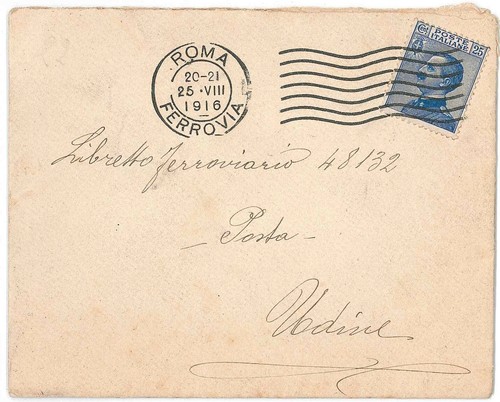 ROMA
20-21
25·VIII
1916
FERROVIA
POSTE
ITALIANE
25
Libretto ferroviario 48132
- Posta -
Udine